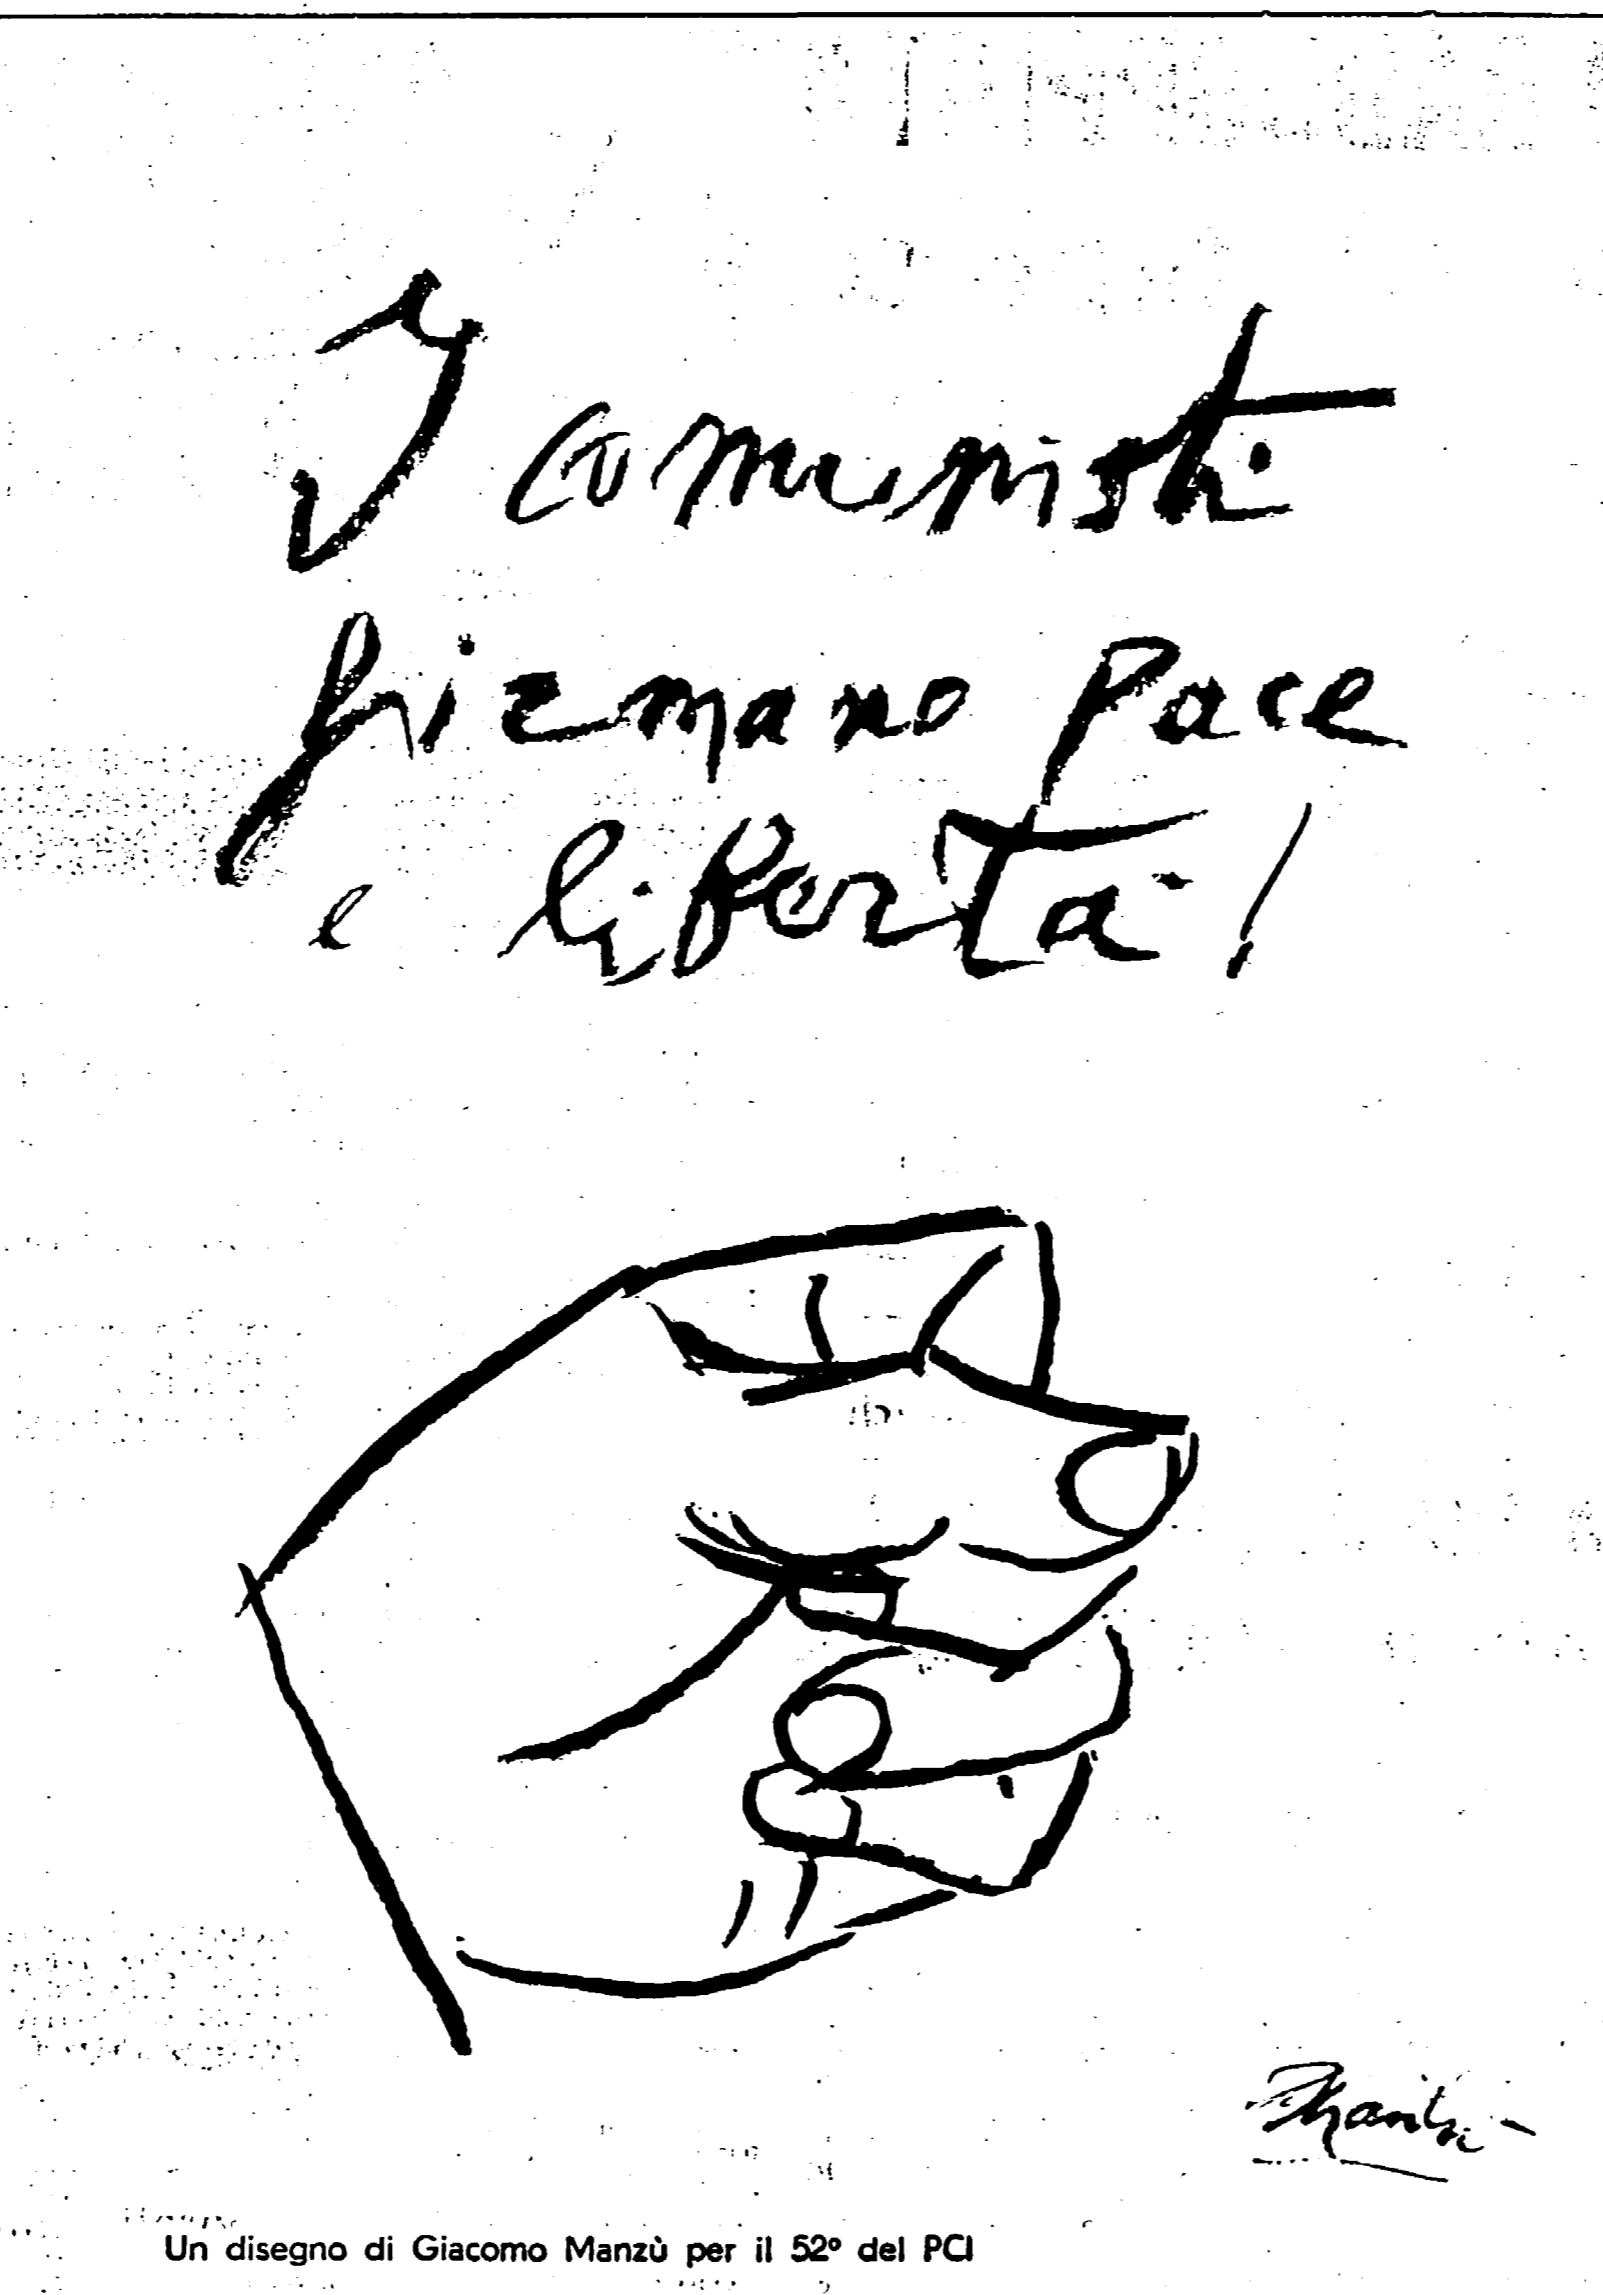 I comunisti
firmano Pace
e libertà!
Manzù
Un disegno di Giacomo Manzù per il 52º del PCI